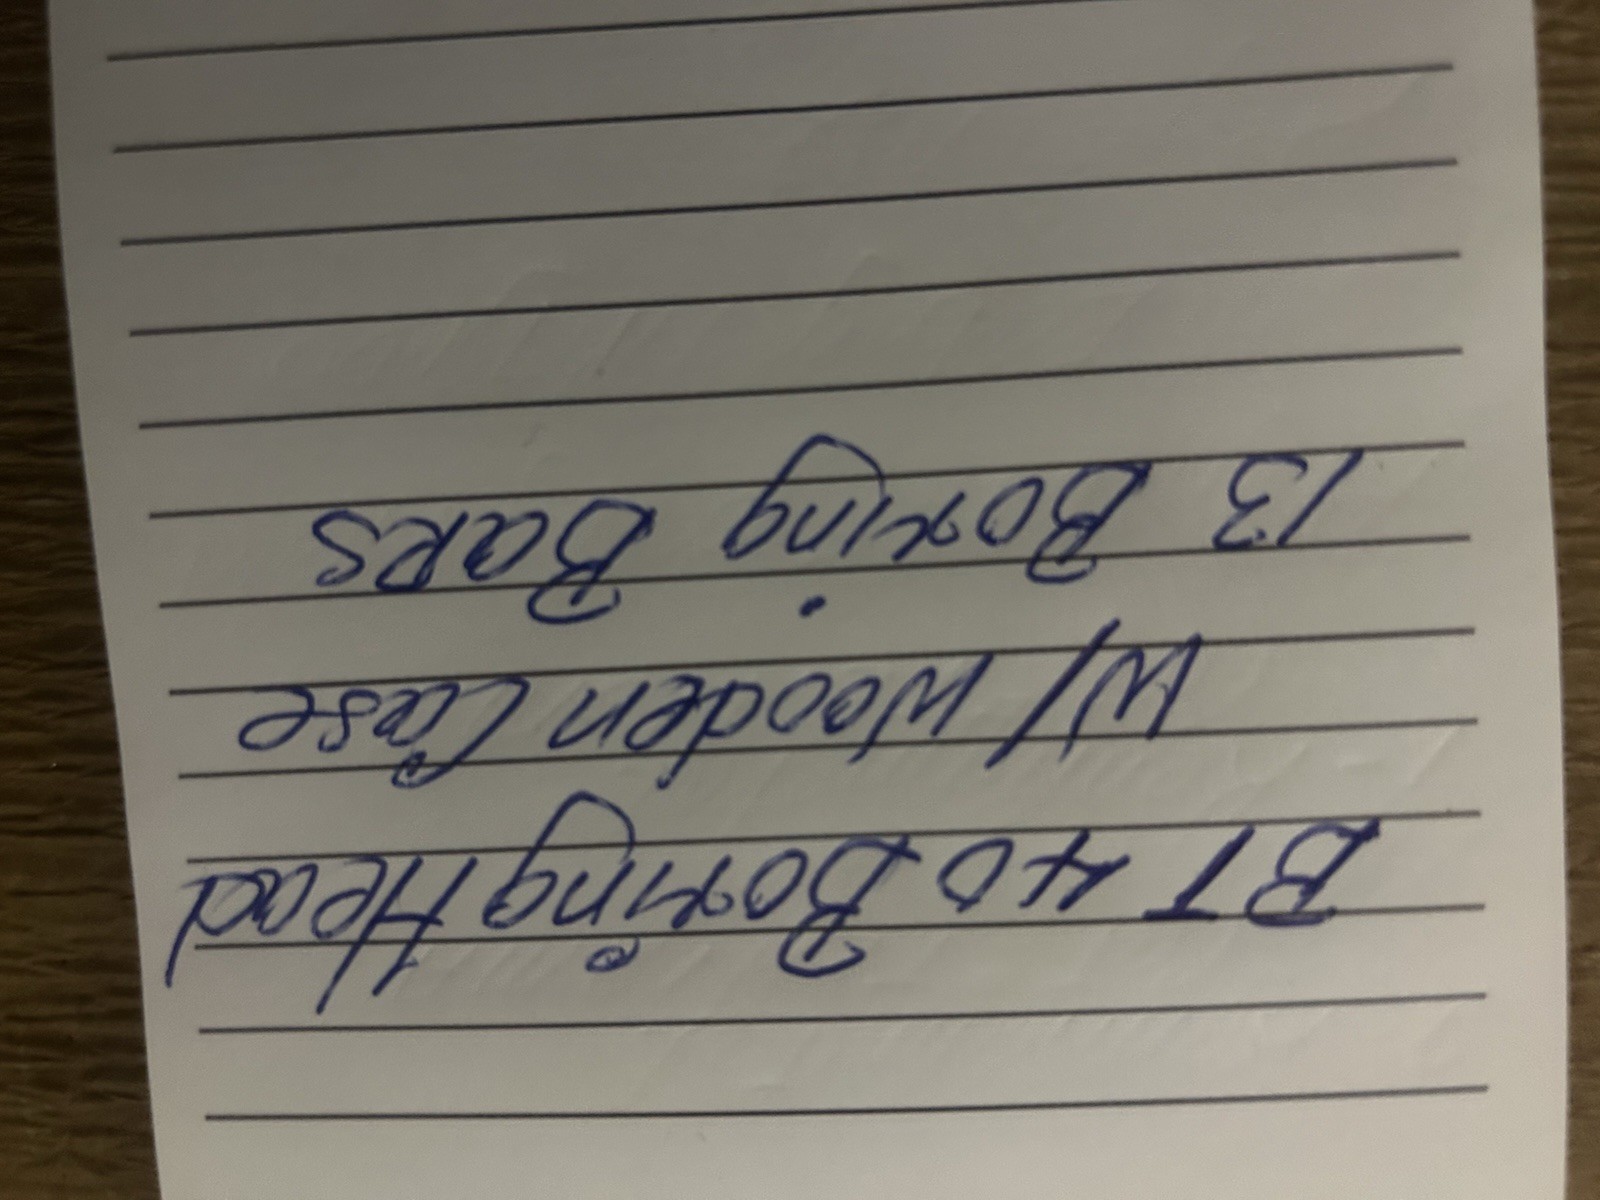 BT 40 Boring Head
W/ Wooden Case
13 Boring BaRs